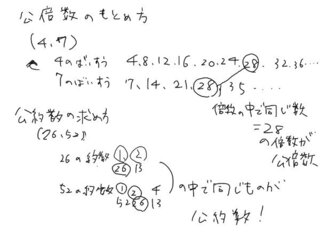 公倍数のもとめ方
(4,7)
4のばいすう 4.8.12.16.20.24.28.32.36....
7のばいすう 7.14.21.28.35.....
倍数の中で同じ数
=28
の倍数が
公倍数
公約数の求め方
(26,52)
26の約数 1, 2
26 13
52の約数 1 2 4
52 26 13
の中で同じものが
公約数!